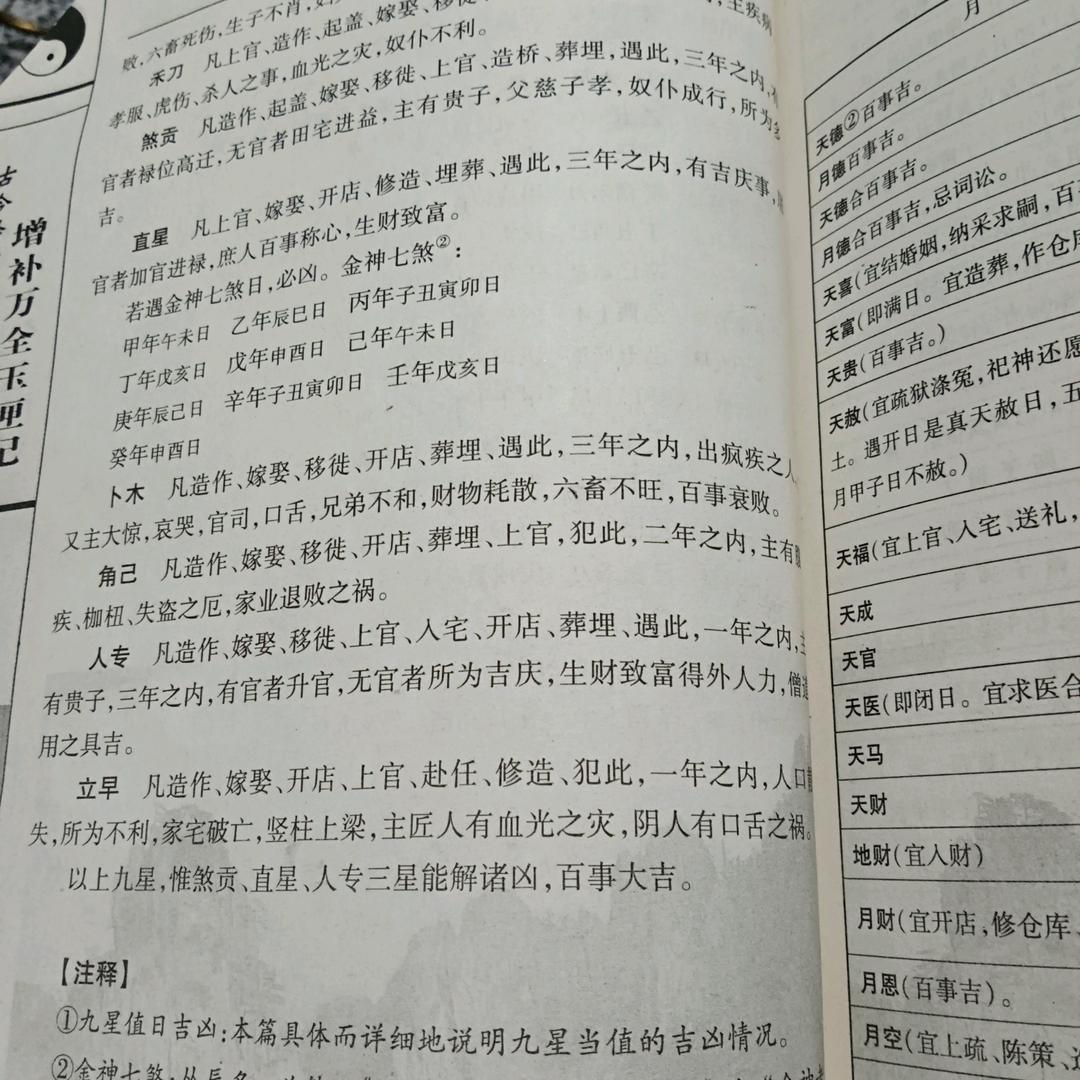 增补万全玉匣记
败,六畜死伤,生子不肖,
主疾病
禾刀 凡上官、造作、起盖、嫁娶、移徙、
孝服、虎伤、杀人之事,血光之灾,奴仆不利。
煞贡 凡造作、起盖、嫁娶、移徙、上官、造桥、葬埋,遇此,三年之内,
官者禄位高迁,无官者田宅进益,主有贵子,父慈子孝,奴仆成行,所为
吉。
直星 凡上官、嫁娶、开店、修造、埋葬、遇此,三年之内,有吉庆事,
官者加官进禄,庶人百事称心,生财致富。
若遇金神七煞日,必凶。金神七煞②:
甲年午未日 乙年辰巳日 丙年子丑寅卯日
丁年戊亥日 戊年申酉日 己年午未日
庚年辰己日 辛年子丑寅卯日 壬年戊亥日
癸年申酉日
卜木 凡造作、嫁娶、移徙、开店、葬埋、遇此,三年之内,出疯疾之人,
又主大惊,哀哭,官司,口舌,兄弟不和,财物耗散,六畜不旺,百事衰败。
角己 凡造作、嫁娶、移徙、开店、葬埋、上官,犯此,二年之内,主有
疾、枷杻、失盗之厄,家业退败之祸。
人专 凡造作、嫁娶、移徙、上官、入宅、开店、葬埋、遇此,一年之内,
有贵子,三年之内,有官者升官,无官者所为吉庆,生财致富得外人力,僧道
用之具吉。
立早 凡造作、嫁娶、开店、上官、赴任、修造、犯此,一年之内,人口
失,所为不利,家宅破亡,竖柱上梁,主匠人有血光之灾,阴人有口舌之祸。
以上九星,惟煞贡、直星、人专三星能解诸凶,百事大吉。
【注释】
①九星值日吉凶:本篇具体而详细地说明九星当值的吉凶情况。
②金神七煞:
月
天德②百事吉。
月德百事吉。
天德合百事吉。
月德合百事吉,忌词讼。
天喜(宜结婚姻,纳采求嗣,百
天富(即满日。宜造葬,作仓库
天贵(百事吉。)
天赦(宜疏狱涤冤,祀神还愿
土。遇开日是真天赦日,五
月甲子日不赦。)
天福(宜上官、入宅、送礼,
天成
天官
天医(即闭日。宜求医合
天马
天财
地财(宜入财)
月财(宜开店,修仓库、
月恩(百事吉)。
月空(宜上疏、陈策、